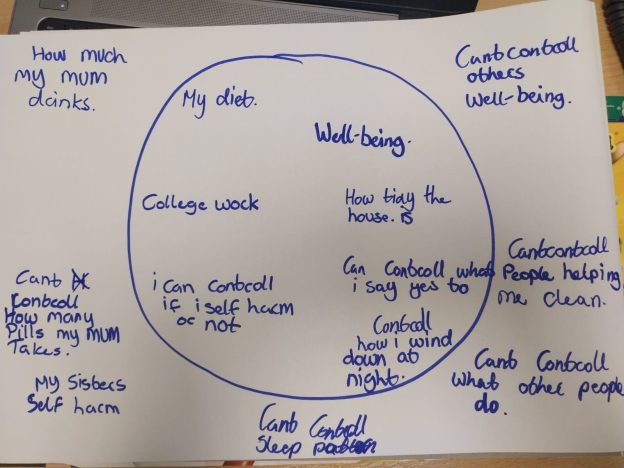 How much
my mum
drinks.
Cant control
others
Well-being.
My diet.
Well-being.
College work
How tidy the
house. is
Cant
Control
How many
Pills my MUM
Takes.
i can control
if i self harm
or not
Can Control what
i say yes to
Cant control
People helping
me clean.
Control
how i wind
down at
night.
My Sisters
Self harm
Cant Control
What other people
do.
Cant Control
Sleep pattern